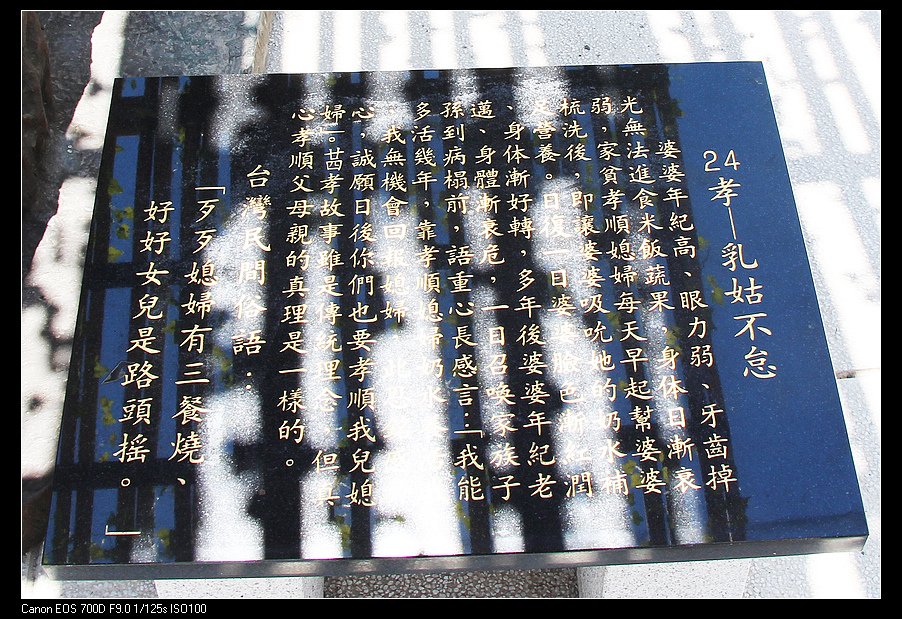 24孝—乳姑不怠
婆婆年紀高、眼力弱、牙齒掉
光無法進食米飯蔬果，身体日漸衰
弱，家貧孝順媳婦每天早起幫婆婆
梳洗後，即讓婆婆吸吮她的奶水補
足營養。日復一日婆婆臉色漸紅潤
、身体漸好轉，多年後婆婆年紀老
邁、身體漸衰危，一日召喚家族子
孫到病榻前，語重心長感言：「我能
多活幾年，靠孝順媳婦奶水
我無機會回報媳婦
心，誠願日後你們也要孝順我兒媳
婦」。茁孝故事雖是傳統理念，但
心孝順父母親的真理是一樣的。
台灣民間俗語：
「歹歹媳婦有三餐燒、
好好女兒是路頭搖。」
Canon EOS 700D F9.0 1/125s ISO100